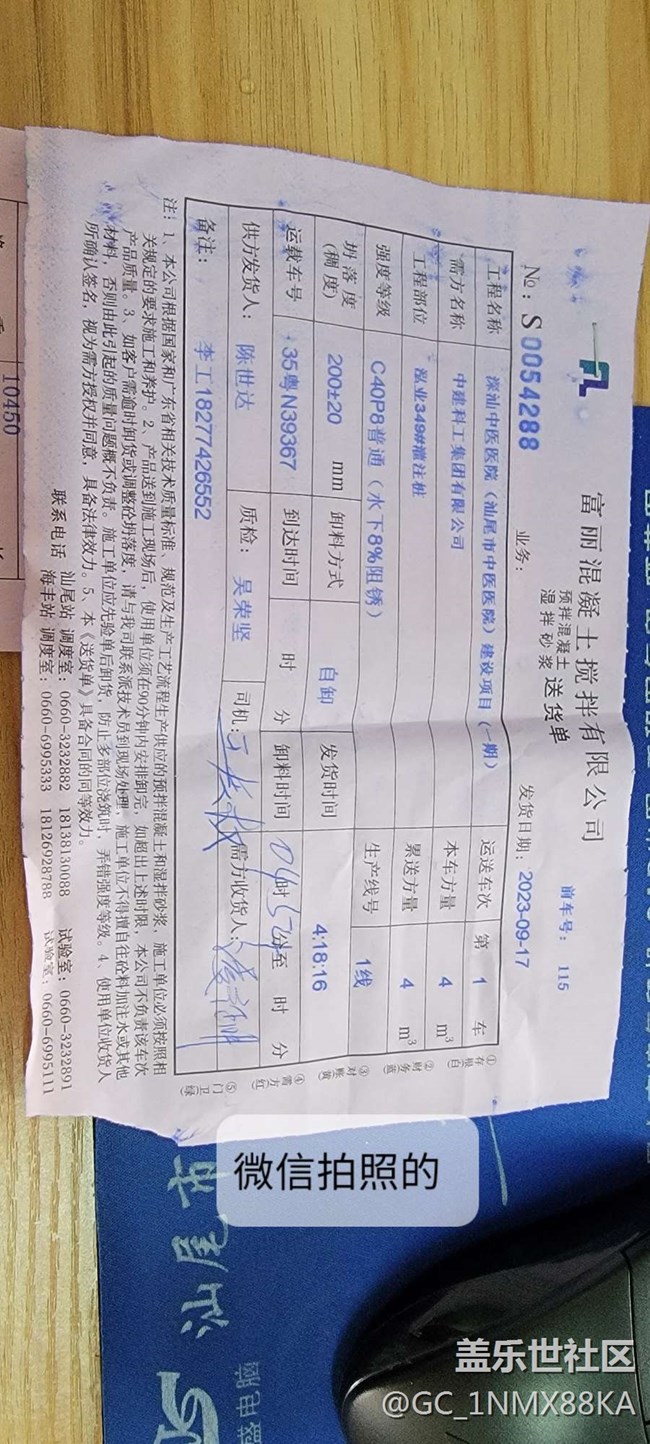 富丽混凝土搅拌有限公司
预拌混凝土
湿拌砂浆 送货单
前车号: 115
№: S 0054288
业务:
发货日期: 2023-09-17
工程名称 深汕中医医院(汕尾市中医医院)建设项目(一期) 运送车次 第 1 车
需方名称 中建科工集团有限公司 本车方量 4 m³
工程部位 泓业349#灌注桩 累送方量 4 m³
强度等级 C40P8普通(水下8%阻锈) 生产线号 1线
坍落度(稠度) 200±20 mm 卸料方式 自卸 发货时间 4:18:16
运载车号 35粤N39367 到达时间 时 分 卸料时间 04时57分至 时 分
供方发货人: 陈世达 质检: 吴荣坚 司机: 需方收货人:
备注: 李工18277426552
①存根(白) ②财务(蓝) ③对账(黄) ④需方(红) ⑤门卫(绿)
注: 1、本公司根据国家和广东省相关技术质量标准、规范及生产工艺流程生产供应的预拌混凝土和湿拌砂浆, 施工单位必须按照相
关规定的要求施工和养护。2、产品送到施工现场后, 使用单位须在90分钟内安排卸完, 如超出上述时限, 本公司不负责该车次
产品质量。3、如客户需逾时卸货或调整砼坍落度, 请与我司联系派技术员到现场处理, 施工单位不得擅自往砼料加注水或其他
材料, 否则由此引起的质量问题概不负责。施工单位应先验单后卸货, 防止多部位浇筑时, 弄错强度等级。4、使用单位收货人
所确认签名, 视为需方授权并同意, 具备法律效力。5、本《送货单》具备合同的同等效力。
联系电话 汕尾站 调度室: 0660-3232882 18138130088 试验室: 0660-3232891
海丰站 调度室: 0660-6995333 18126928788 试验室: 0660-6995111
10450
微信拍照的
汕尾市
盛电脑
盖乐世社区
@GC_1NMX88KA